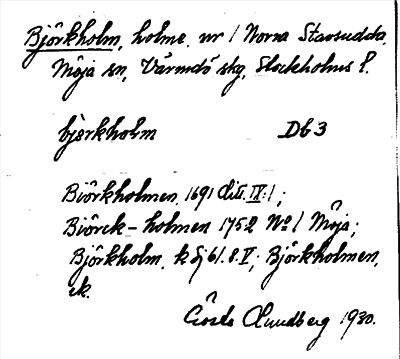 Björkholm, holme nr 1 Norra Stavsudda,
Möja sn, Värmdö skg, Stockholms l.
björkholm Db 3
Biörkholmen 1691 Litt. IX:1;
Biörck-holmen 1752 No 1 Möja;
Björkholm k Sj 61.8.V; Björkholmen,
ek.
Gösta Lundberg 1930.